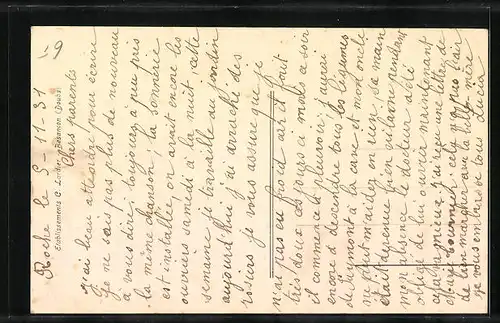 Roche le 5-11-31
Chers parents
J'ai beau attendre pour écrire
je ne sais pas plus de nouveau
à vous dire, toujours à peu près
la même chanson, la sonnerie
est installée, on avait encore les
ouvriers samedi à la nuit cette
semaine je travaille au jardin
aujourd'hui j'ai arraché des
rosiers je vous assure que je
n'ai pas eu froid car il fait
très doux ces jours-ci mais ce soir
il commence à pleuvoir j'aurai
encore à descendre tous les légumes
à la cave et mon oncle
ne peut m'aider en rien, sa main
était devenue bien vilaine pendant
mon absence le docteur a été
obligé de lui ouvrir maintenant
ça va mieux j'ai reçu une lettre de
cela n'a pas l'air
de bien marcher avec la belle-mère
je vous embrasse tous Lucia
Etablissements C. Lardier - Besançon (Doubs)